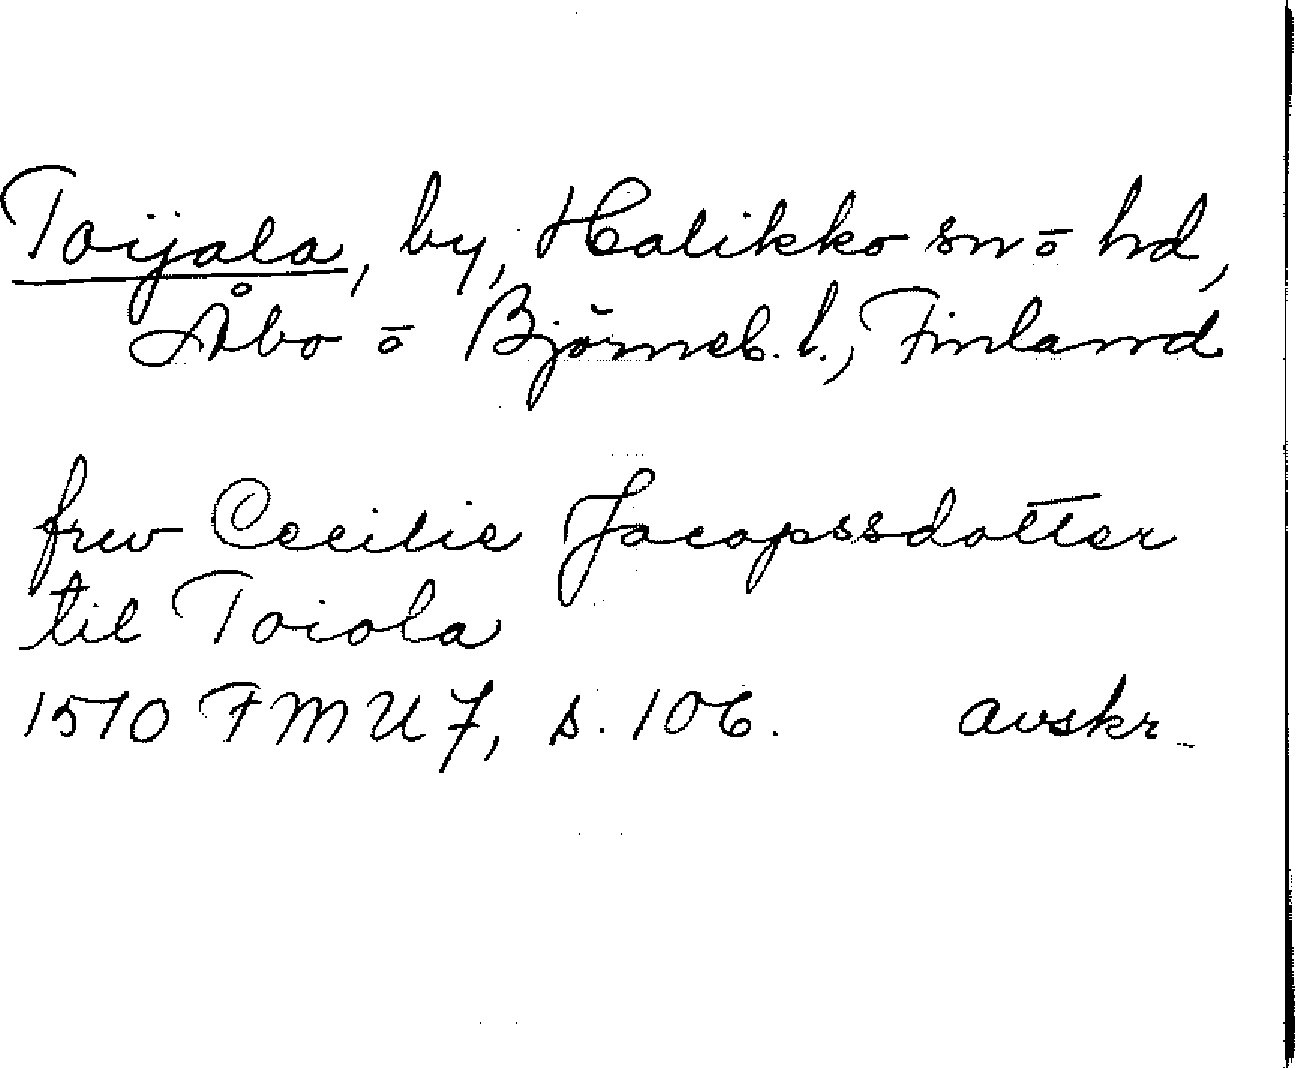 Toijala, by, Halikko sn o hd,
Åbo o Björneb. l., Finland
frw Cecilie Jacopssdotter
til Toiola
1510 FMU 7, s. 106. avskr.